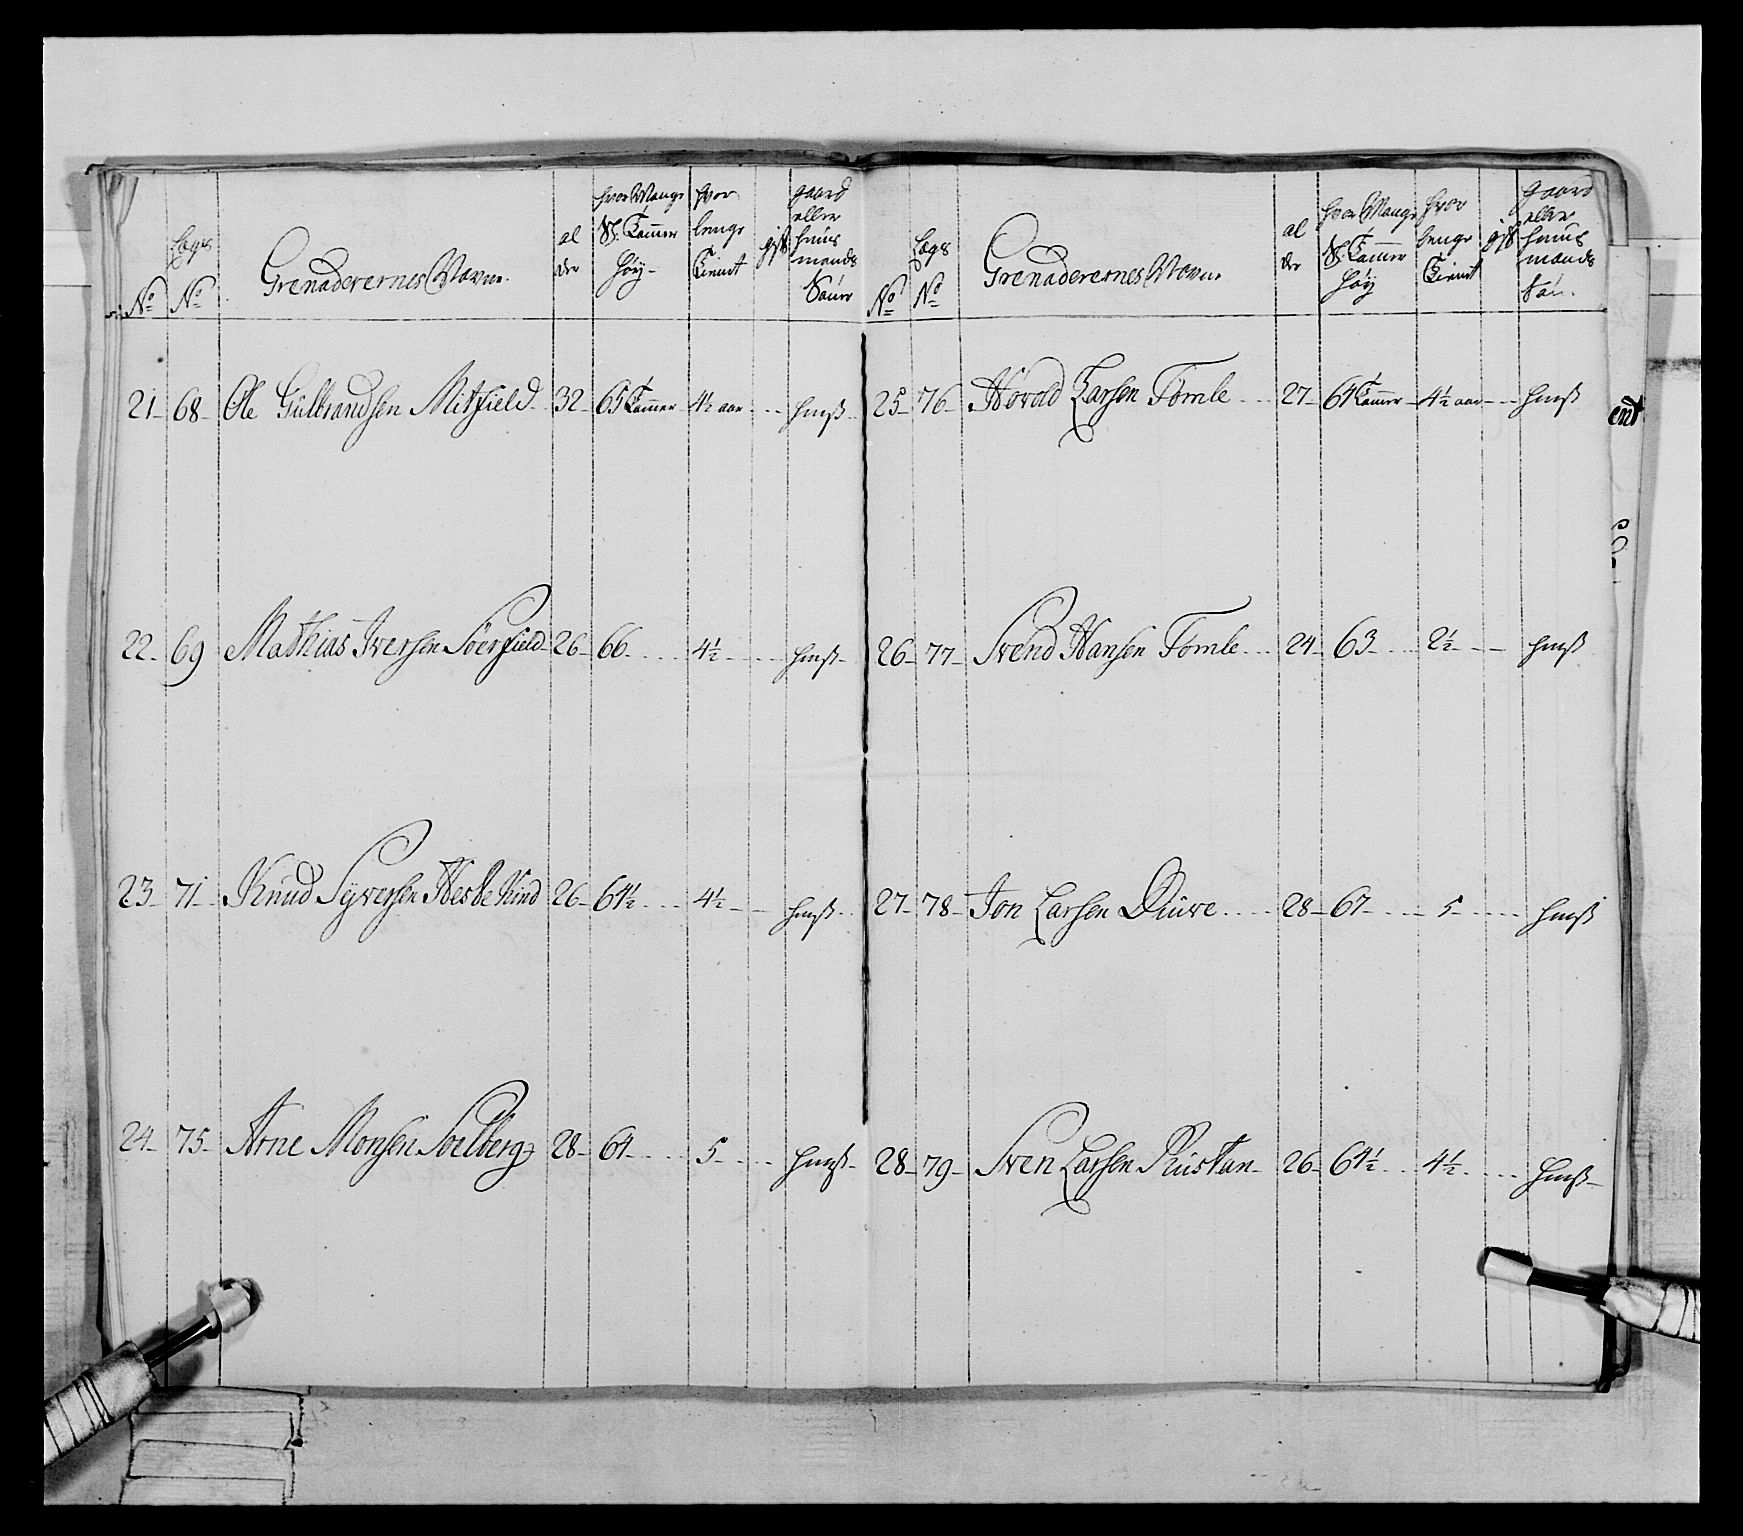 No Legs No Grenaderernes Navne. alder hvor Mange Tommer høy lenge Tient gift gaard eller huus mands Sønn
21 68 Ole Gülbrandsen Mitfield 32 65 Tommer 4½ aar hmß
22 69 Mathias Iversen Söerfield 26 66 4½ hmß
23 71 Knud Syversen Hesle Kind 26 64½ 4½ hmß
24 75 Arne Monsen Soelberg 28 64 5 hmß
No Legs No Grenaderernes Navne alder hvor Mange Tommer høy hvor lenge Tient gift gaard eller huus mands Søn.
25 76 Hovold Larsen Tömle 27 64 Tommer 4½ aar hmß
26 77 Svend Hansen Tomle 24 63 2½ hmß
27 78 Jon Larsen Diuve 28 67 5 hmß
28 79 Sven Larsen Rustan 26 64½ 4½ hmß
ent